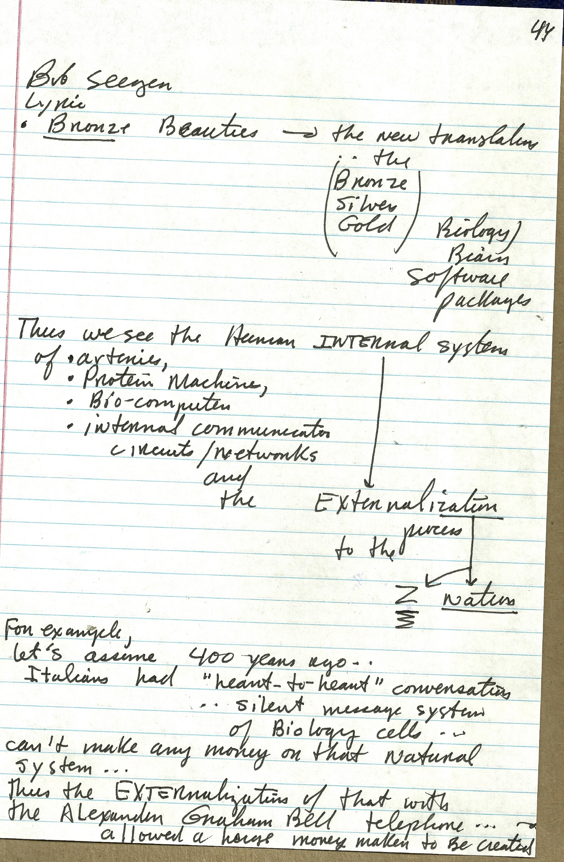 44
Bob Seegen
Lyric
• Bronze Beauties → the new translation
∴ the
(Bronze
Silver
Gold)
Biology/
Brain
Software
packages
Thus we see the Human INTERNAL system
of • arteries,
• Protein Machine,
• Bio-computer
• internal communicator
circuits/networks
and
the EXternalization
process
to the
Z nation
For example,
let's assume 400 years ago...
Italians had "heart-to-heart" conversation
... silent message system
of Biology cells ...
can't make any money on that natural
system...
Thus the EXTERNalization of that with
the Alexander Graham Bell telephone... →
allowed a huge money maker to be created